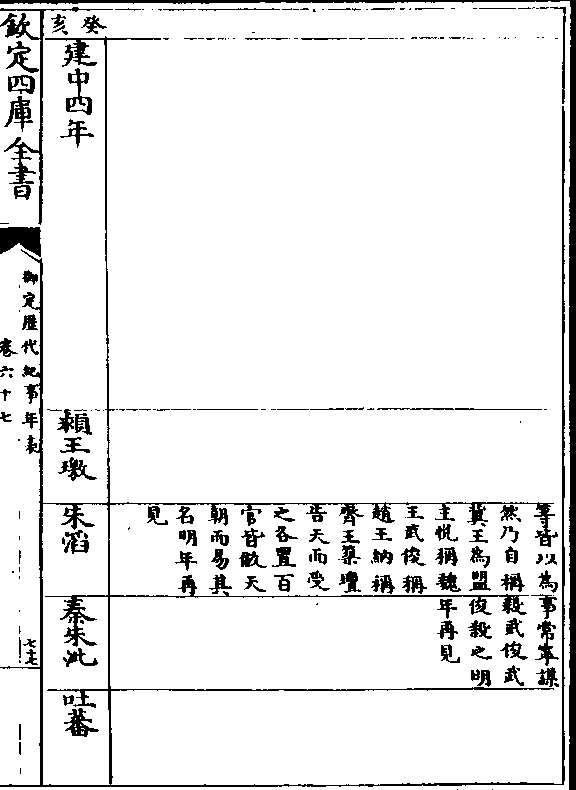 等皆以為
然乃自稱
冀王為盟
主悅稱魏
王武俊稱
趙王納稱
齊王築壇
告天而受
之各置百
官皆倣天
朝而易其
名明年再
見
事常寧謀
殺武俊武
俊殺之明
年再見
癸亥
建中四年
王璬
朱滔
秦朱泚
吐蕃
欽定四庫全書
御定歷代紀事年表
卷六十七